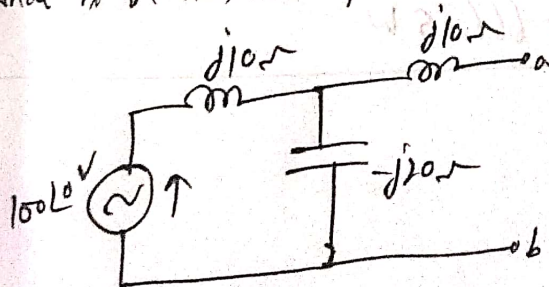 j10Ω
j10Ω
a
100∠0 V
-j20Ω
b